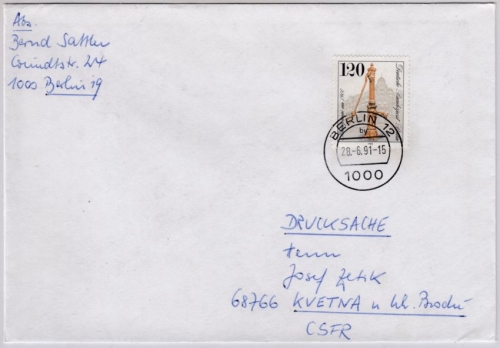 Abs.
Bernd Sattler
Grindtstr. 24
1000 Berlin 19
120
BERLIN 12
by
28.-6.91-15
1000
DRUCKSACHE
Herrn
Josef Zetik
68766 KVETNA u Uh. Brodu
CSFR